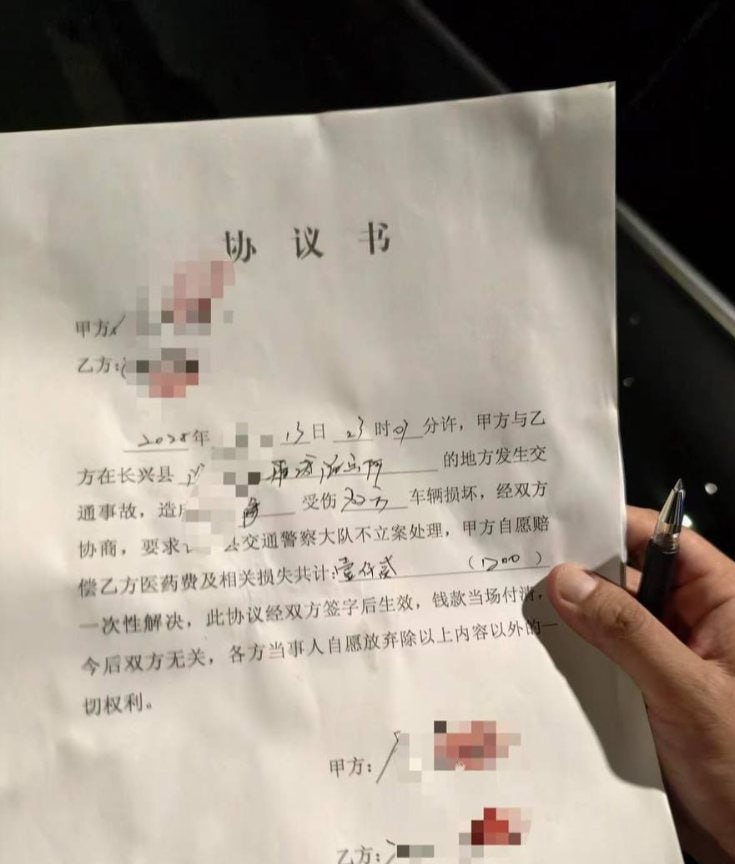 协 议 书
甲方
乙方:
2025年 13日 23时 分许，甲方与乙
方在长兴县 派出所 的地方发生交
通事故，造 受伤 双方 车辆损坏，经双方
协商，要求 县交通警察大队不立案处理，甲方自愿赔
偿乙方医药费及相关损失共计:壹仟贰 (1200)
一次性解决，此协议经双方签字后生效，钱款当场付清，
今后双方无关，各方当事人自愿放弃除以上内容以外的一
切权利。
甲方:
乙方: